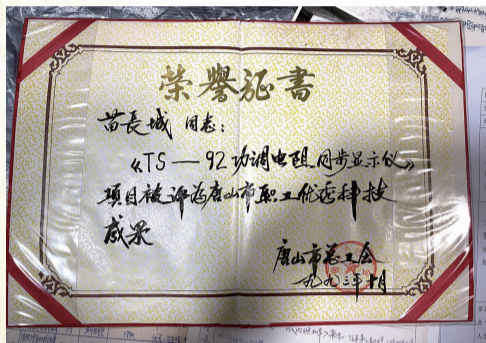 荣誉证书
苗長城 同志：
《TS—92功调电阻同步显示仪》
项目被评为唐山市职工优秀科技
成果
唐山市总工会
一九九三年十月